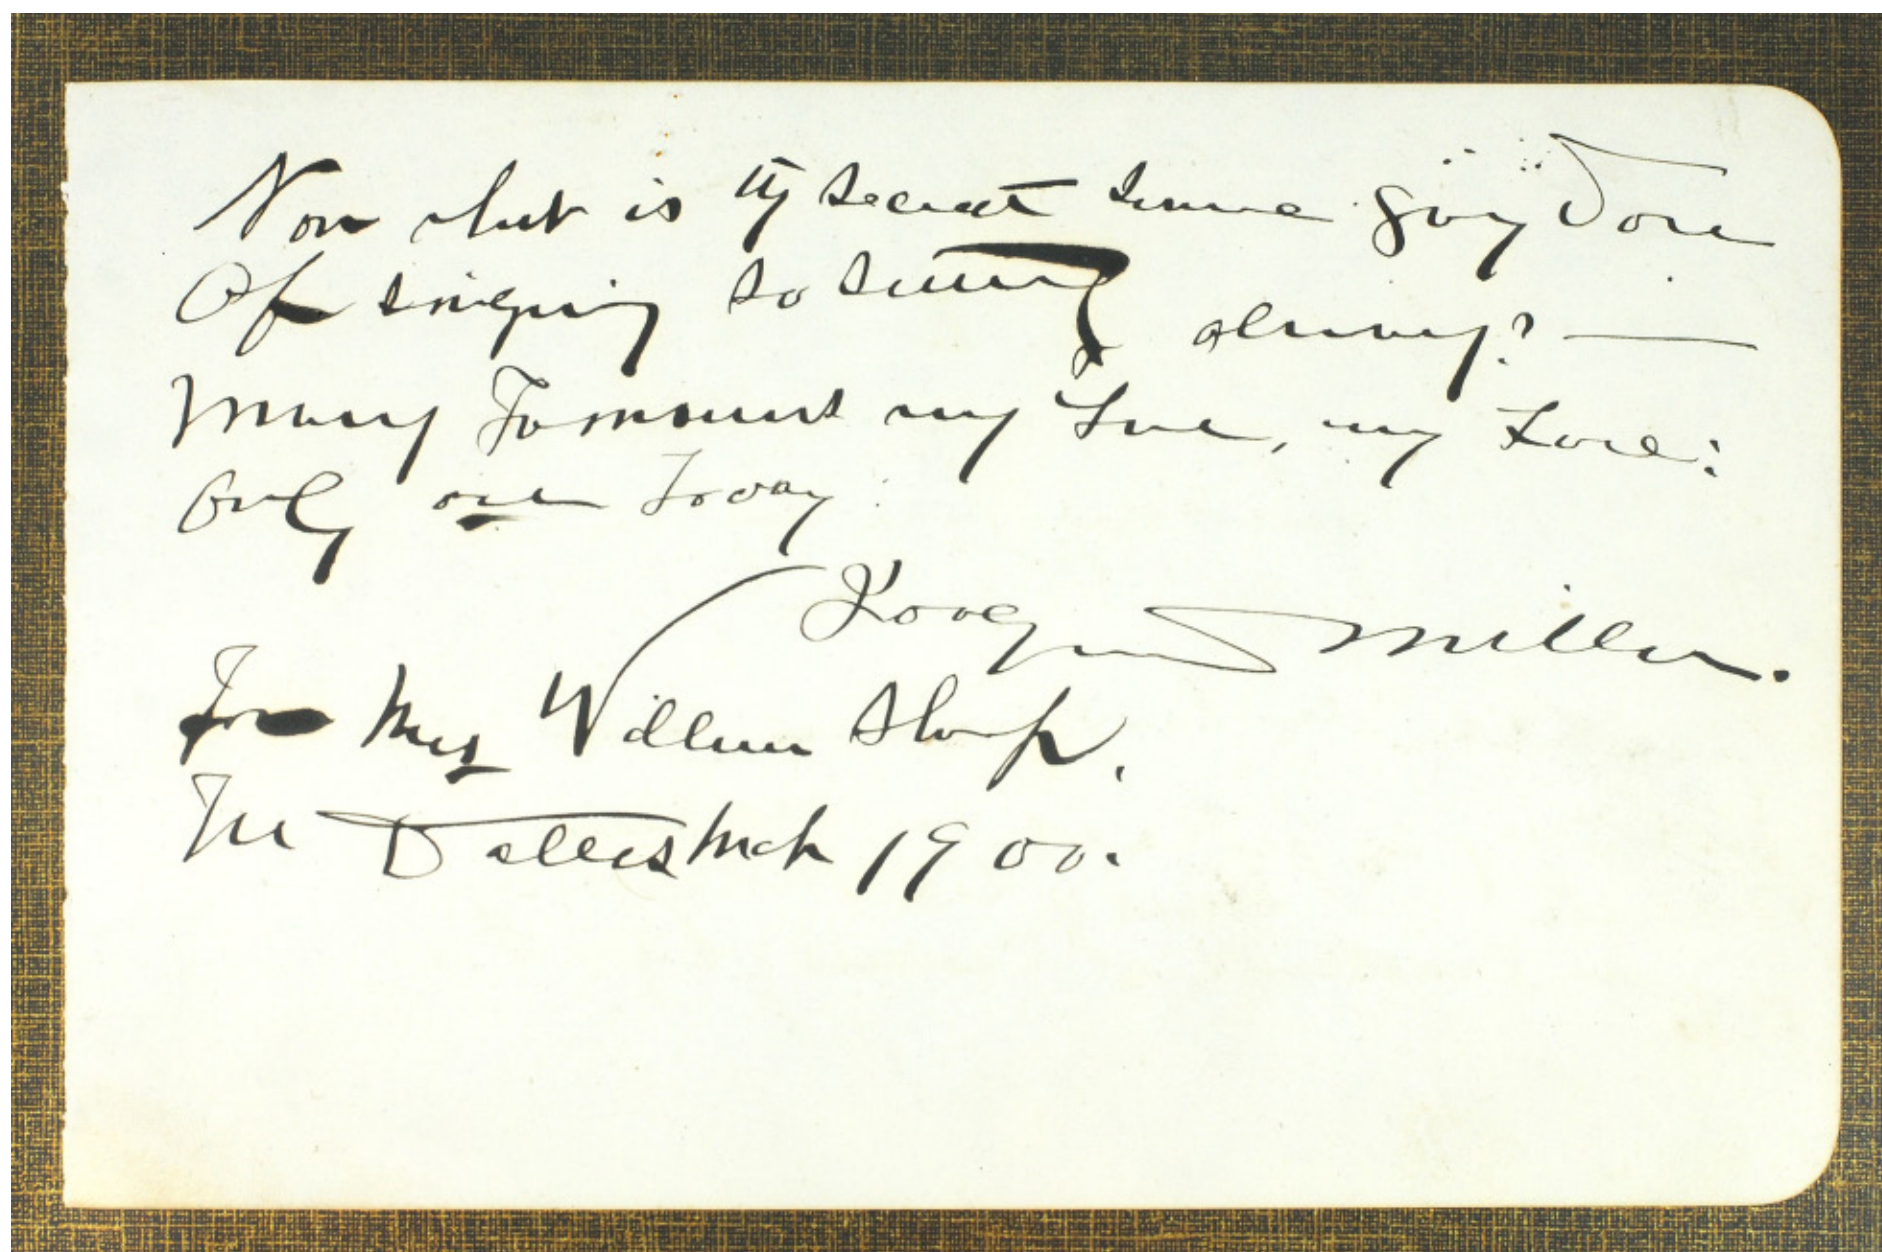 Now what is thy secret serene gray Dove
Of singing so sweetly alway? —
Many Tomorrows my Love, my Love:
Only one Today
Joaquin Miller.
For Mrs William Sharp,
The Dalles Mch 1900.